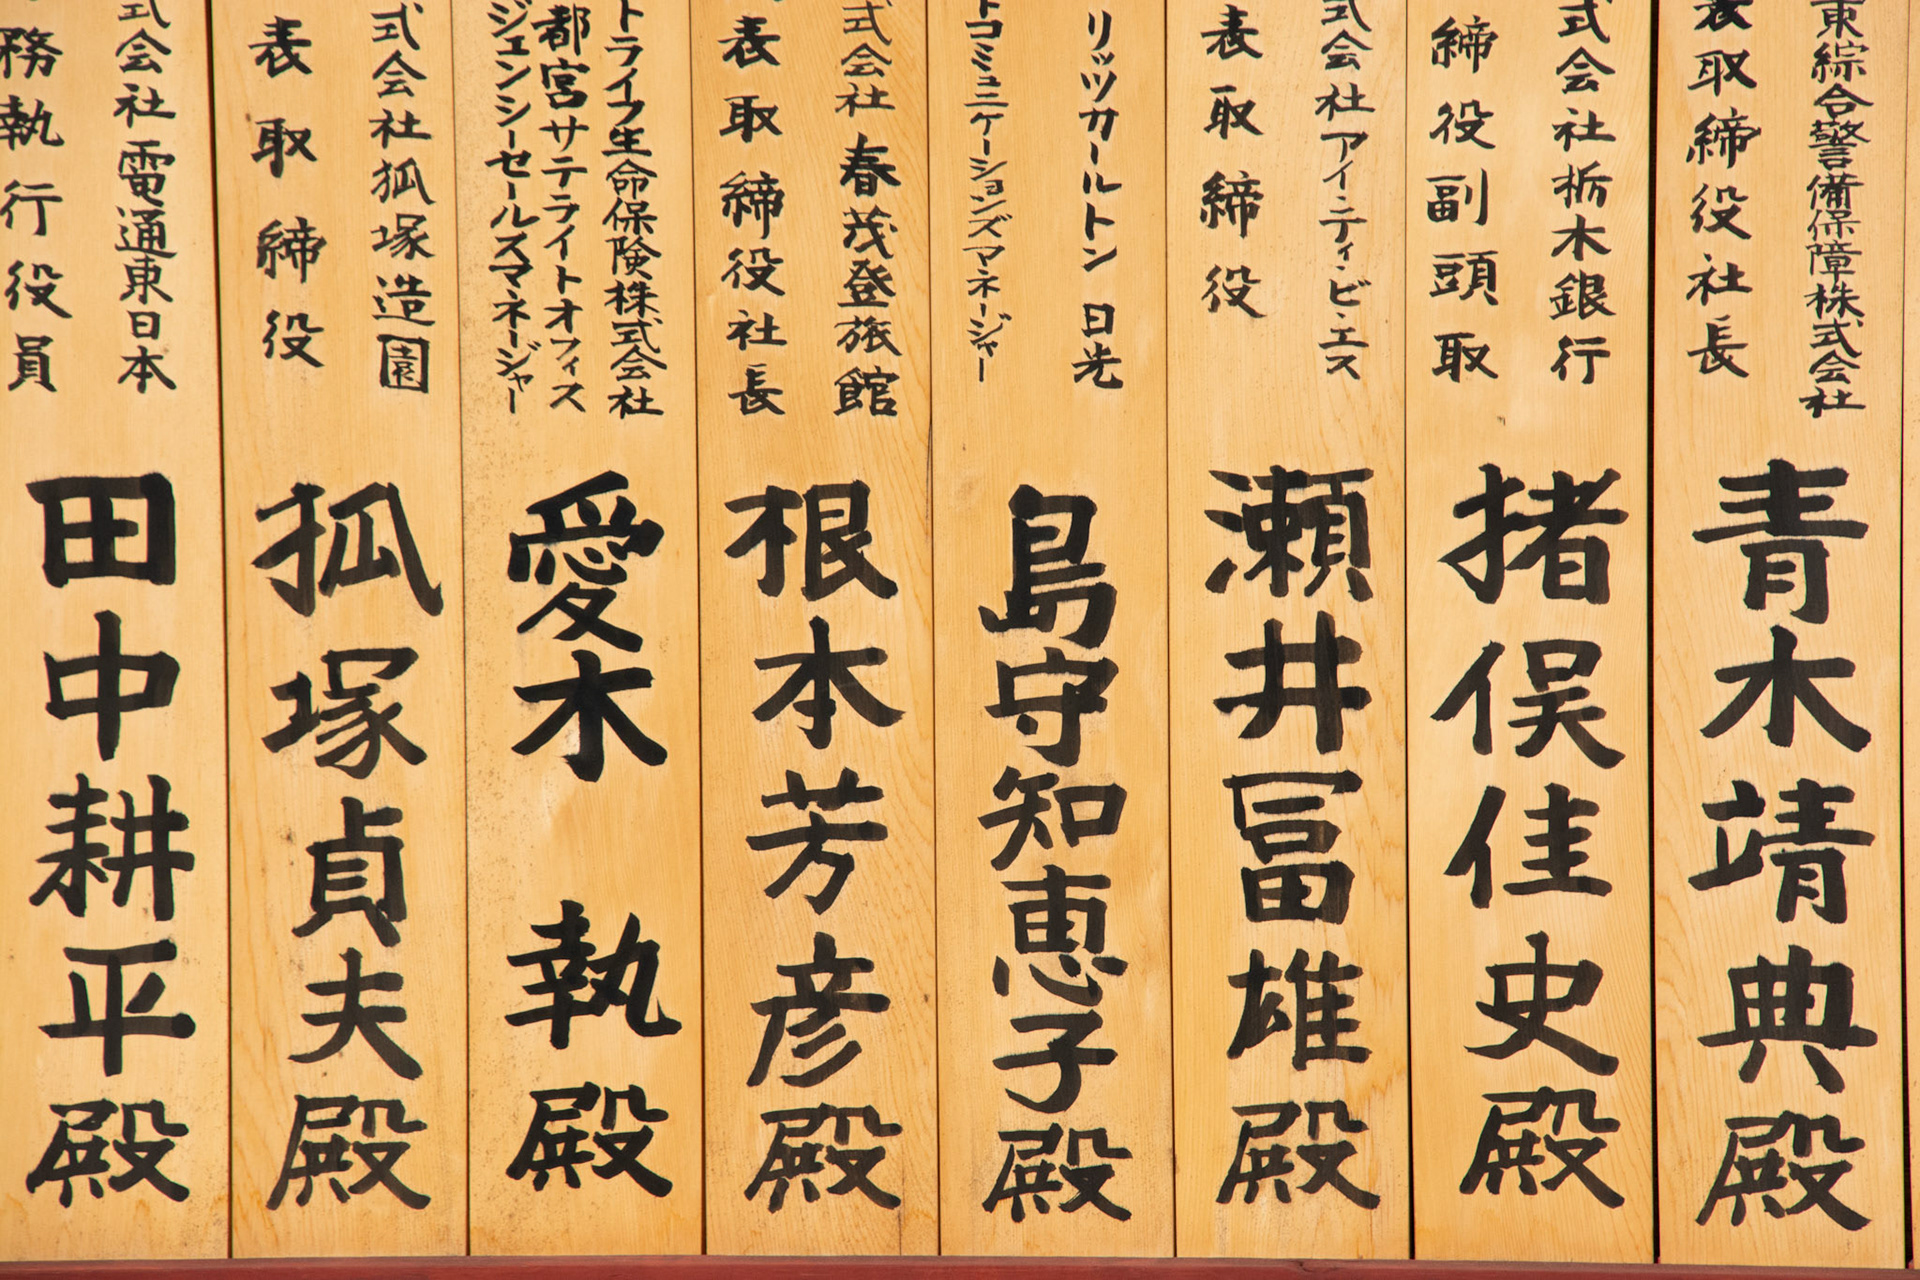 東綜合警備保障株式会社
表取締役社長
青木靖典殿
式会社栃木銀行
締役副頭取
猪俣佳史殿
式会社アイ・ティ・ビ・エス
表取締役
瀬井冨雄殿
リッツカールトン日光
トコミュニケーションズマネージャー
島守知恵子殿
式会社春茂登旅館
表取締役社長
根本芳彦殿
トライフ生命保険株式会社
都宮サテライトオフィス
ジェンシーセールスマネージャー
愛木 執殿
式会社狐塚造園
表取締役
狐塚貞夫殿
式会社電通東日本
務執行役員
田中耕平殿